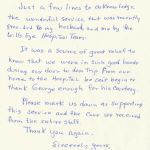 Just a few lines to acknowledge
the wonderful service that was recently
provided to my husband and me by the
Hospital Team.
It was a source of great relief to
know that we were in such good hands
during our door to door trip from our
home to the Hospital. We can't begin to
thank George enough for his courtesy.
Please mark us down as supporting
this service and the care we received
from the entire staff.
Thank you again.
Sincerely yours,